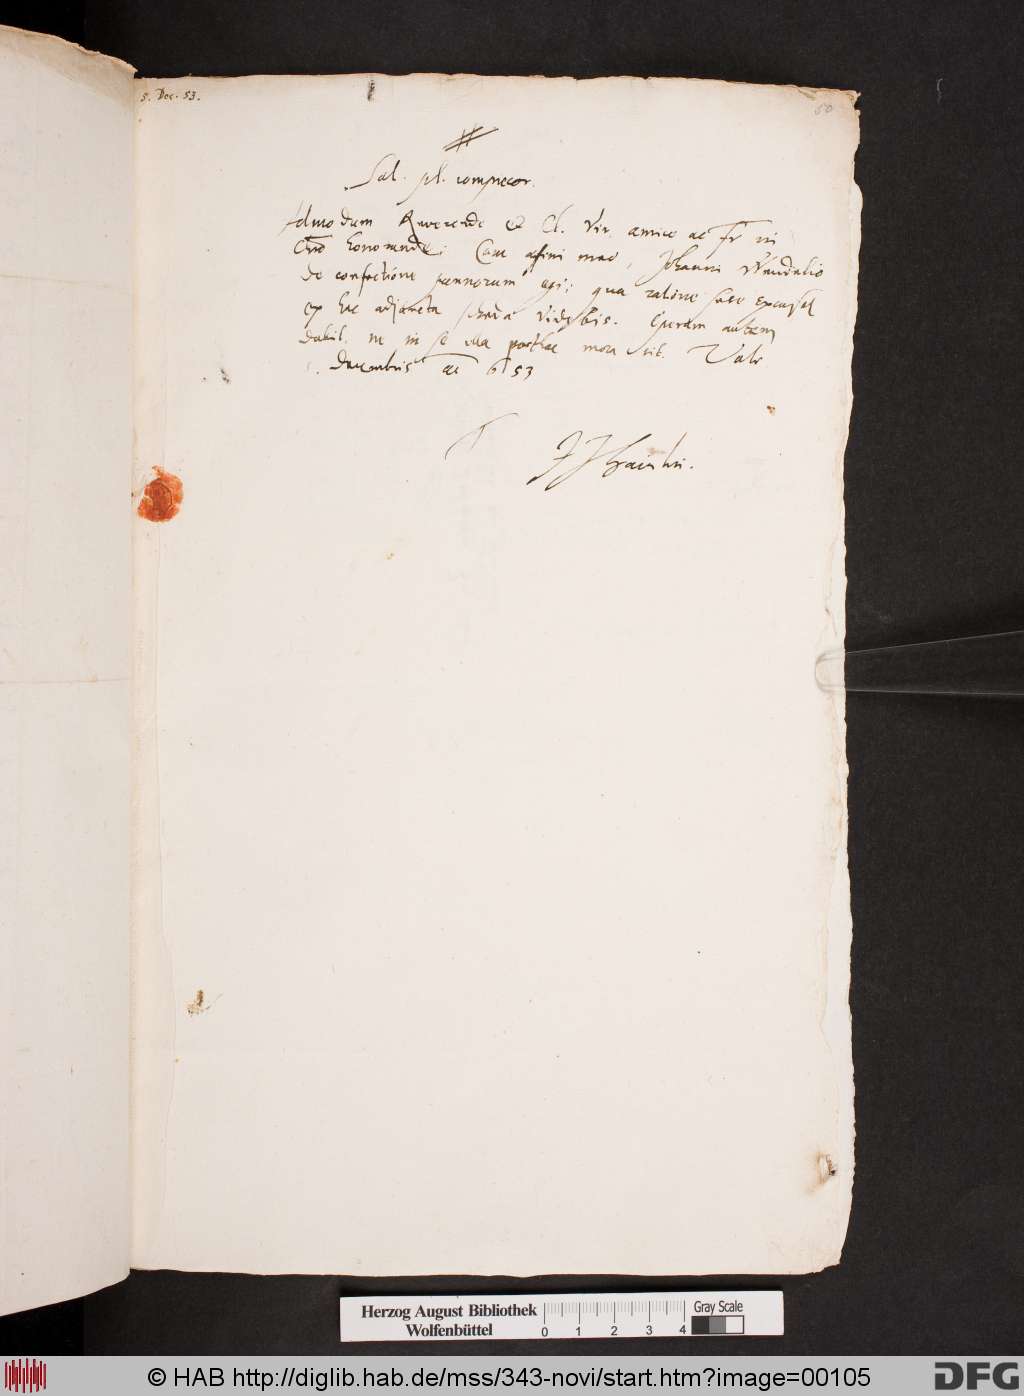 5. Dec. 53.
50
Sal. pl. comprecor.
Admodum Reverende & Cl. Vir, amice ac Fr in
Chro honorande; Cum affini meo, Johanni Wandalio
de confectione pannorum egi; qua ratione sese excuset
ex hac adjuncta scheda videbis. Operam autem
dabit, ne in se ulla posthac mora sit. Vale
5. Decembris ao 653
T
Herzog August Bibliothek
Wolfenbüttel
0 1 2 3 4
Gray Scale
© HAB http://diglib.hab.de/mss/343-novi/start.htm?image=00105
DFG